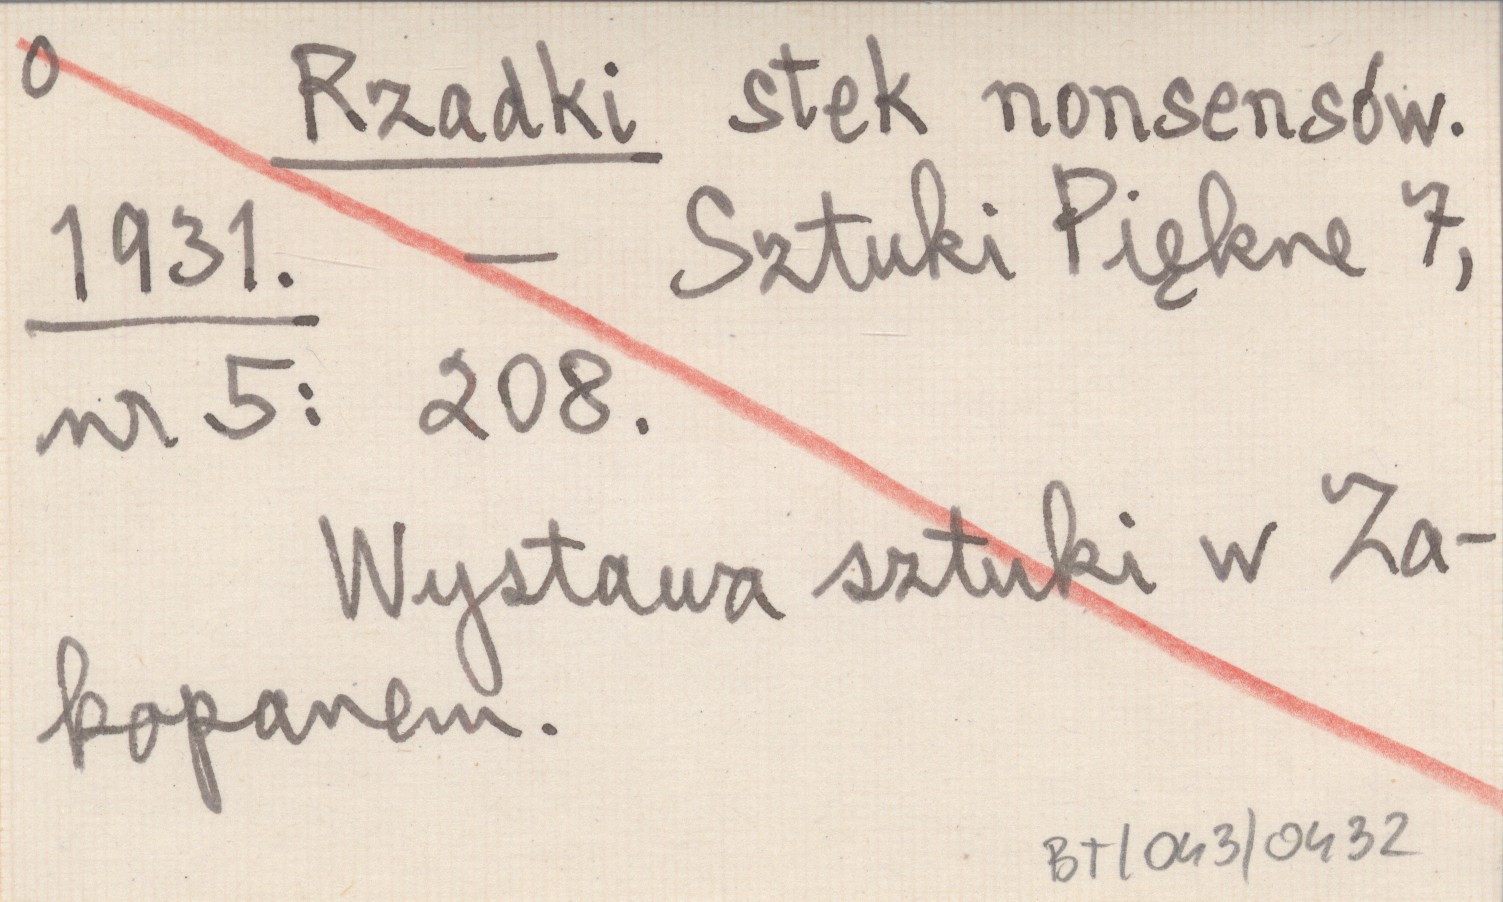 0 Rzadki stek nonsensów.
1931. — Sztuki Piękne 7,
nr 5: 208.
Wystawa sztuki w Za-
kopanem.
BT/043/0432